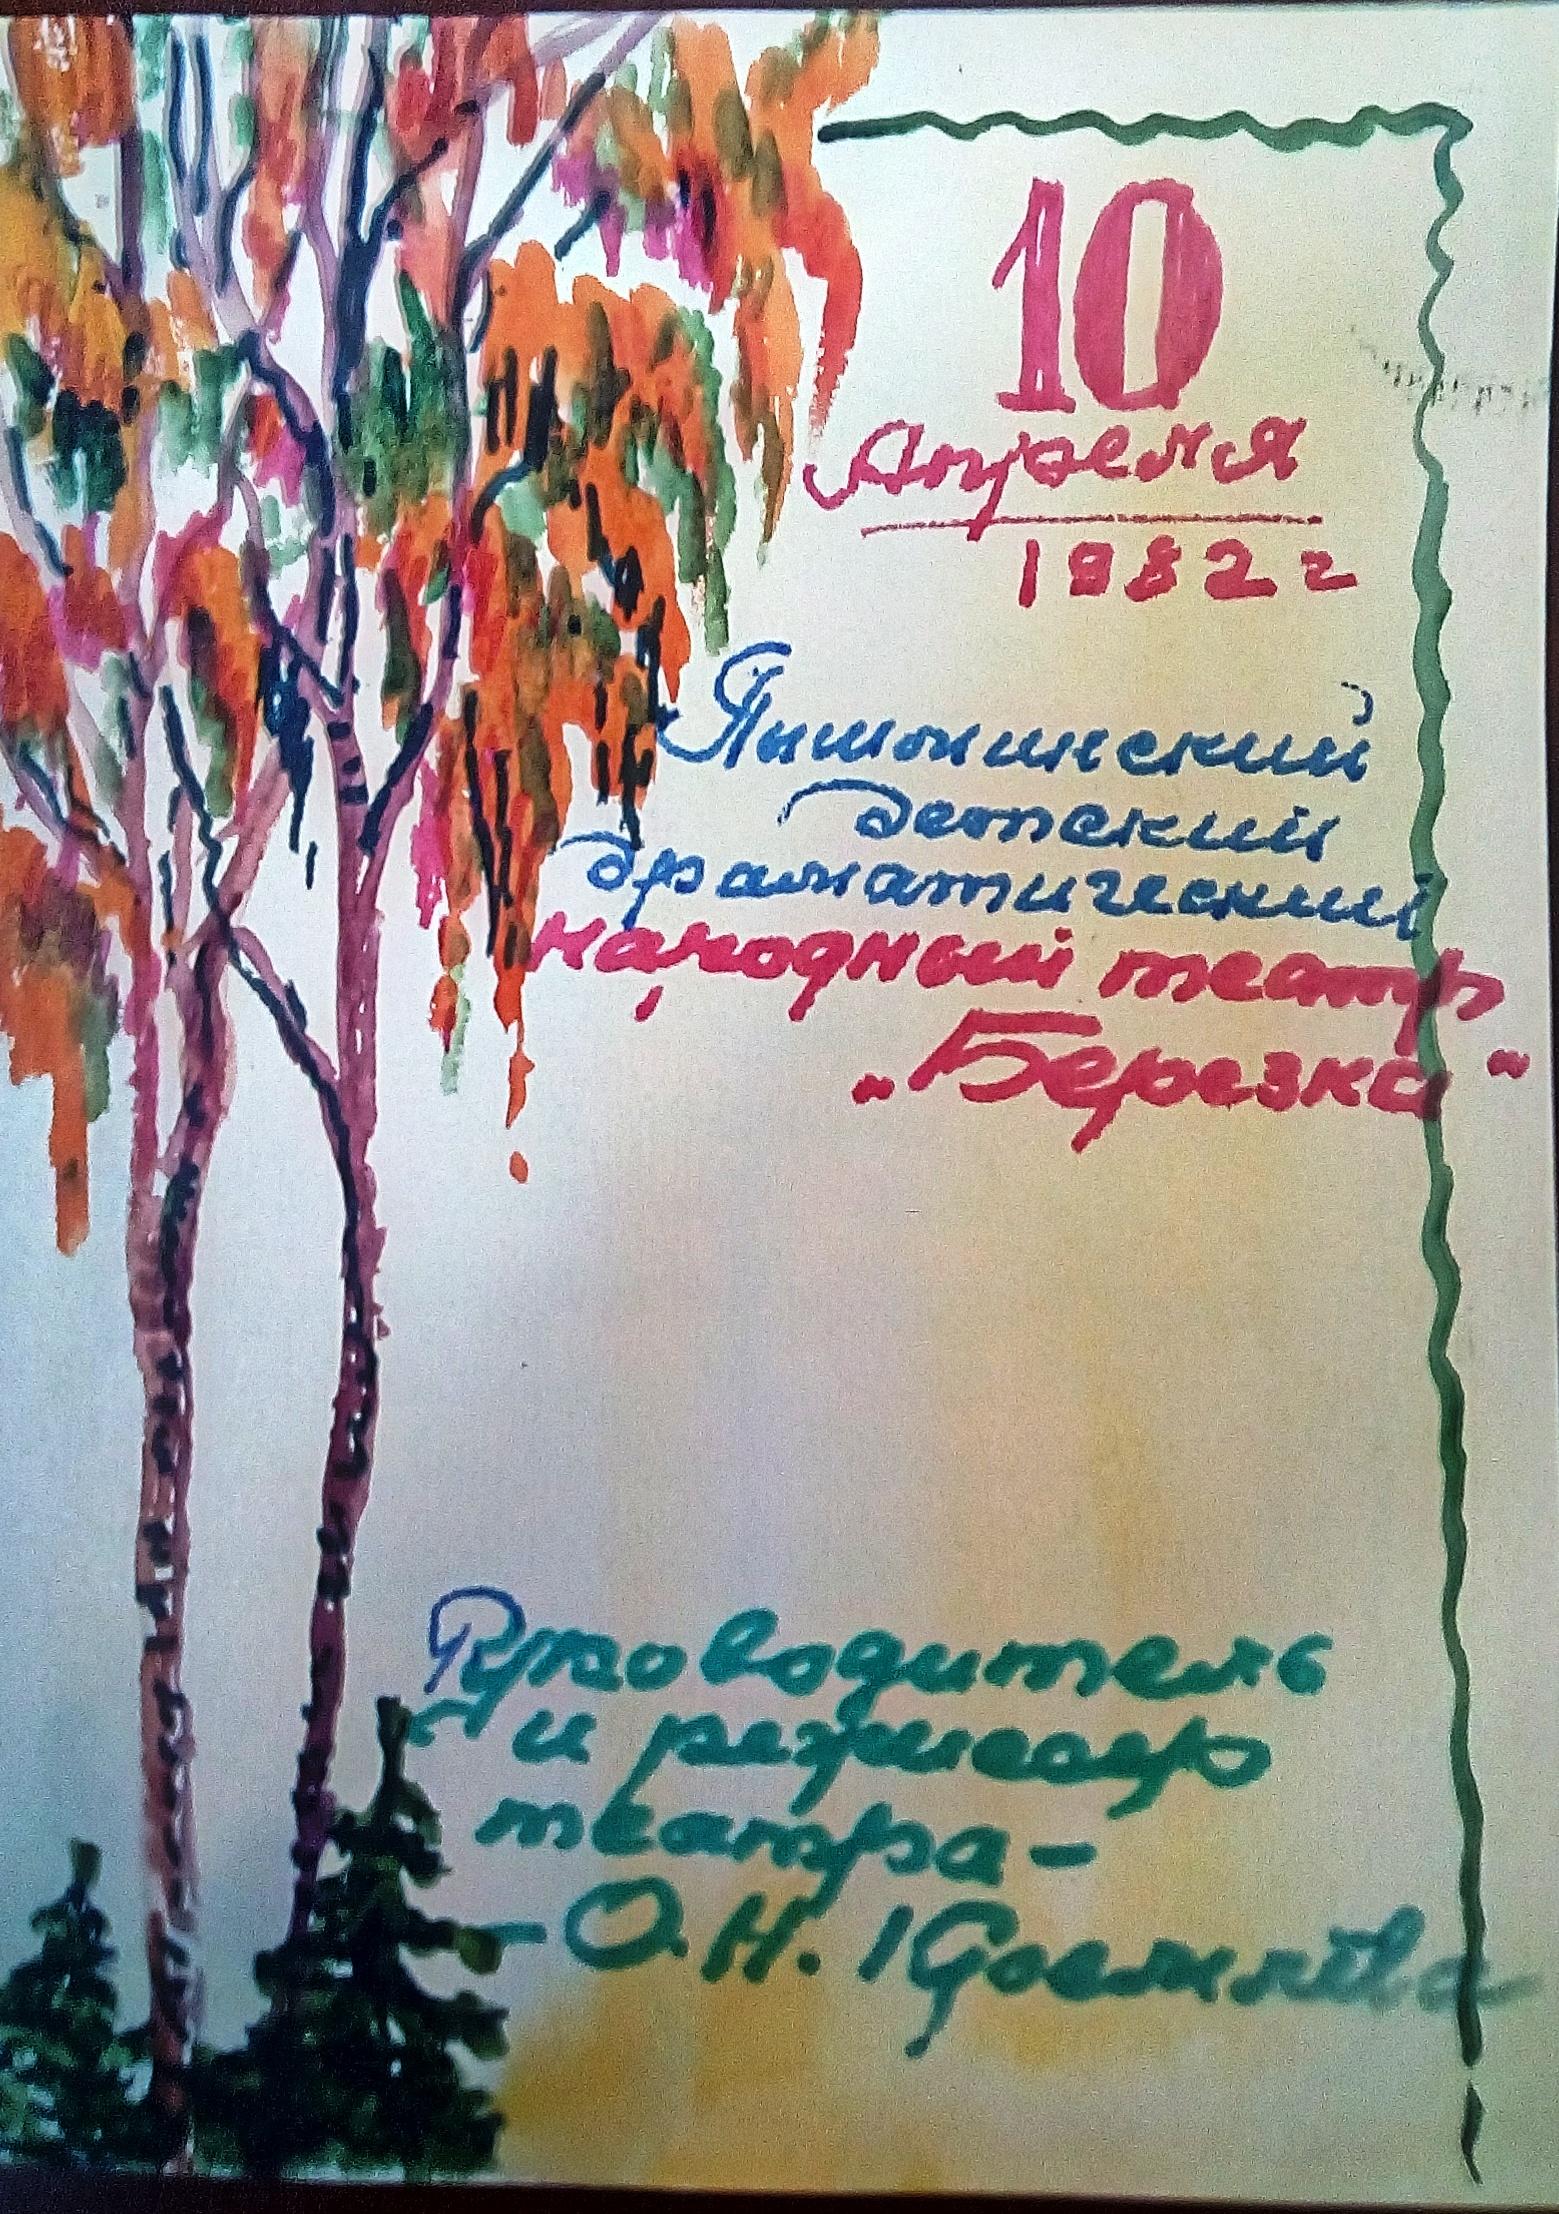 10
Апреля
1982 г
Пышминский
детский
драматический
народный театр
„Березка"
Руководитель
и режиссер
театра-
-О.Н.